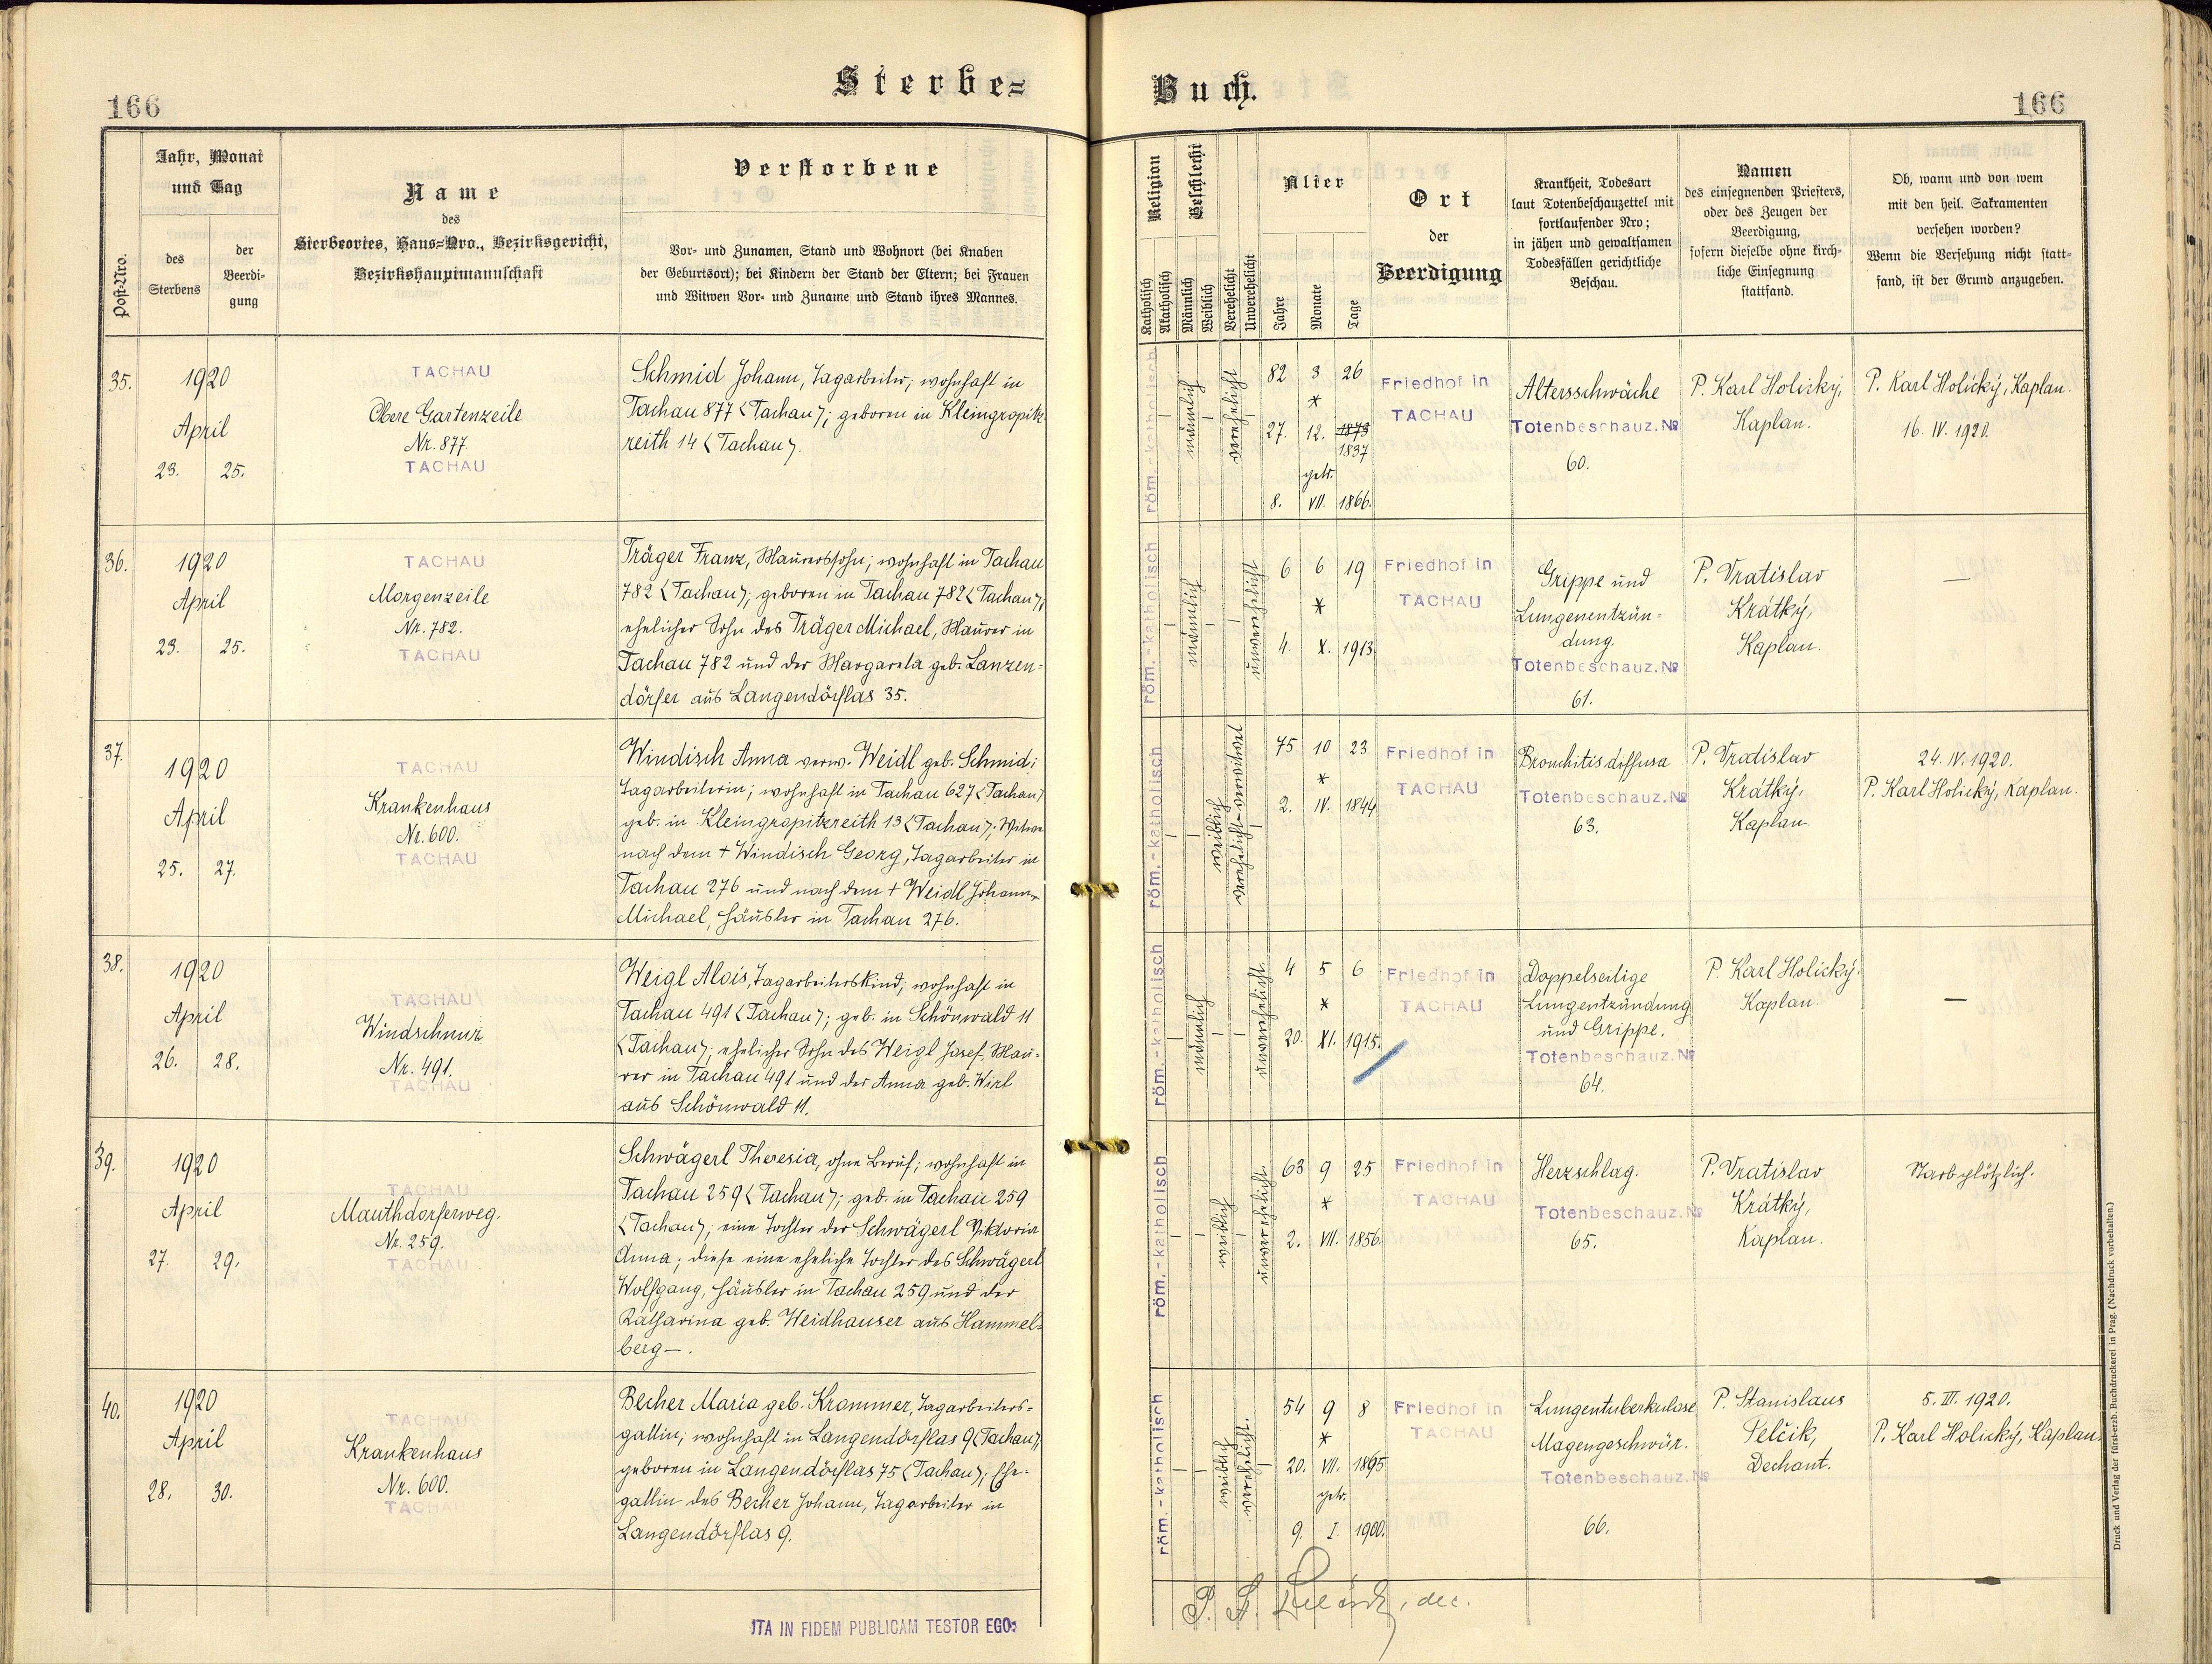 166
Sterbe=
Post-Nro.
Jahr, Monat
und Tag
des
Sterbens
der
Beerdi-
gung
Name
des
Sterbeortes, Haus=Nro., Bezirksgericht,
Bezirkshauptmannschaft
Verstorbene
Vor- und Zunamen, Stand und Wohnort (bei Knaben
der Geburtsort); bei Kindern der Stand der Eltern; bei Frauen
und Witwen Vor- und Zuname und Stand ihres Mannes.
35.
1920
April
23. 25.
TACHAU
Obere Gartenzeile
Nr. 877.
TACHAU
Schmid Johann, Tagarbeiter; wohnhaft in
Tachau 877 <Tachau>; geboren in Kleingropitz-
reith 14 <Tachau>.
36.
1920
April
23. 25.
TACHAU
Morgenzeile
Nr. 782.
TACHAU
Träger Franz, Maurerssohn; wohnhaft in Tachau
782 <Tachau>; geboren in Tachau 782 <Tachau>;
ehelicher Sohn des Träger Michael, Maurer in
Tachau 782 und der Margareta geb. Lanzen=
dörfer aus Langendörflas 35.
37.
1920
April
25. 27.
TACHAU
Krankenhaus
Nr. 600.
TACHAU
Windisch Anna verw. Weidl geb. Schmid;
Tagarbeiterin; wohnhaft in Tachau 627 <Tachau>
geb. in Kleingropitzreith 13 <Tachau>; Witwe
nach dem + Windisch Georg, Tagarbeiter in
Tachau 276 und nach dem + Weidl Johann
Michael, Häusler in Tachau 276.
38.
1920
April
26. 28.
TACHAU
Windschnur
Nr. 491.
TACHAU
Weigl Alois, Tagarbeiterskind; wohnhaft in
Tachau 491 <Tachau>; geb. in Schönwald 11
<Tachau>; ehelicher Sohn des Weigl Josef, Mau=
rer in Tachau 491 und der Anna geb. Wirl
aus Schönwald 11.
39.
1920
April
27. 29.
TACHAU
Mauthdorferweg.
Nr. 259.
TACHAU
Schwägerl Theresia, ohne Beruf; wohnhaft in
Tachau 259 <Tachau>; geb. in Tachau 259
<Tachau>; eine Tochter der Schwägerl Viktoria
Anna; diese eine eheliche Tochter des Schwägerl
Wolfgang, Häusler in Tachau 259 und der
Katharina geb. Weidhauser aus Hammel=
berg —.
40.
1920
April
28. 30.
TACHAU
Krankenhaus
Nr. 600.
TACHAU
Becher Maria geb. Krammer, Tagarbeiters=
gattin; wohnhaft in Langendörflas 9 <Tachau>;
geboren in Langendörflas 75 <Tachau>; Ehe-
gattin des Becher Johann, Tagarbeiter in
Langendörflas 9.
ITA IN FIDEM PUBLICAM TESTOR EGO:
Buch.
166
Religion
Katholisch
Akatholisch
Geschlecht
Männlich
Weiblich
Verehelicht
Unverehelicht
Alter
Jahre
Monate
Tage
Ort
der
Beerdigung
Krankheit, Todesart
laut Totenbeschauzettel mit
fortlaufender Nro;
in jähen und gewaltsamen
Todesfällen gerichtliche
Beschau.
Namen
des einsegnenden Priesters,
oder des Zeugen der
Beerdigung,
sofern dieselbe ohne kirch-
liche Einsegnung
stattfand.
Ob, wann und von wem
mit den heil. Sakramenten
versehen worden?
Wenn die Versehung nicht statt=
fand, ist der Grund anzugeben.
röm.-katholisch
männlich
verehelicht
82 3 26
*
27. 12. 1873
1837
getr.
8. VII. 1866.
Friedhof in
TACHAU
Altersschwäche
Totenbeschauz. No
60.
P. Karl Holický,
Kaplan.
P. Karl Holický, Kaplan.
16. IV. 1920.
röm.-katholisch
männlich
unverehelicht
6 6 19
*
4. X. 1913.
Friedhof in
TACHAU
Grippe und
Lungenentzün=
dung.
Totenbeschauz. No
61.
P. Vratislav
Krátký,
Kaplan.
—
röm.-katholisch
weiblich
verehelicht-verwitwet
75 10 23
*
2. IV. 1844
Friedhof in
TACHAU
Bronchitis diffusa
Totenbeschauz. No
63.
P. Vratislav
Krátký,
Kaplan.
24. IV. 1920.
P. Karl Holický, Kaplan.
röm.-katholisch
männlich
unverehelicht.
4 5 6
*
20. XI. 1915.
Friedhof in
TACHAU
Doppelseitige
Lungentzündung
und Grippe.
Totenbeschauz. No
64.
P. Karl Holický.
Kaplan.
—
röm.-katholisch
weiblich
unverehelicht.
63 9 25
*
2. VII. 1856.
Friedhof in
TACHAU
Herzschlag.
Totenbeschauz. No
65.
P. Vratislav
Krátký,
Kaplan.
Starb plötzlich.
röm.-katholisch
weiblich
verehelicht.
54 9 8
*
20. VII. 1865
getr.
9. I. 1900.
Friedhof in
TACHAU
Lungentuberkulose
Magengeschwür.
Totenbeschauz. No
66.
P. Stanislaus
Pelčik,
Dechant.
5. III. 1920.
P. Karl Holický, Kaplan.
P. S. Pelčik, dec.
Druck und Verlag der fürst-erzb. Buchdruckerei in Prag. (Nachdruck vorbehalten.)